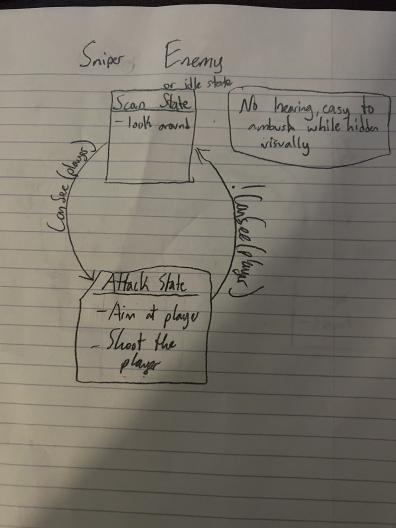 Sniper Enemy
or idle state
Scan State
- look around
No hearing, easy to
ambush while hidden
visually
CanSee(player)
!CanSee(player)
Attack State
- Aim at player
- Shoot the
player